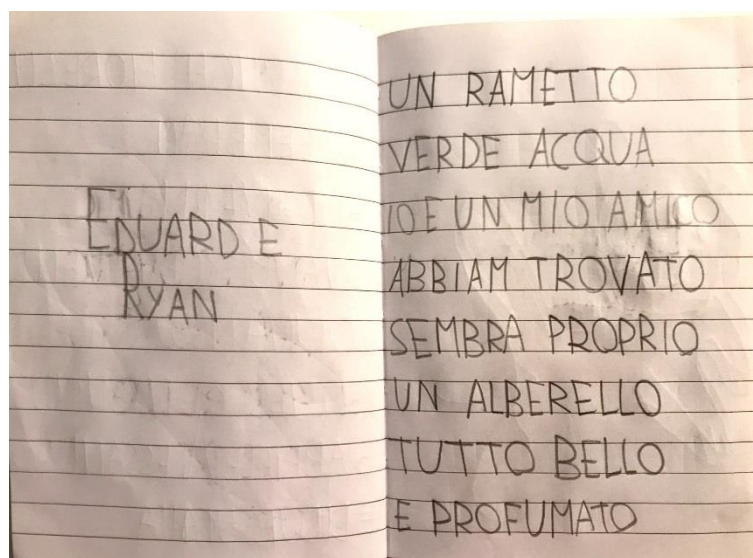 EDUARD E
RYAN
UN RAMETTO
VERDE ACQUA
IO E UN MIO AMICO
ABBIAM TROVATO
SEMBRA PROPRIO
UN ALBERELLO
TUTTO BELLO
E PROFUMATO